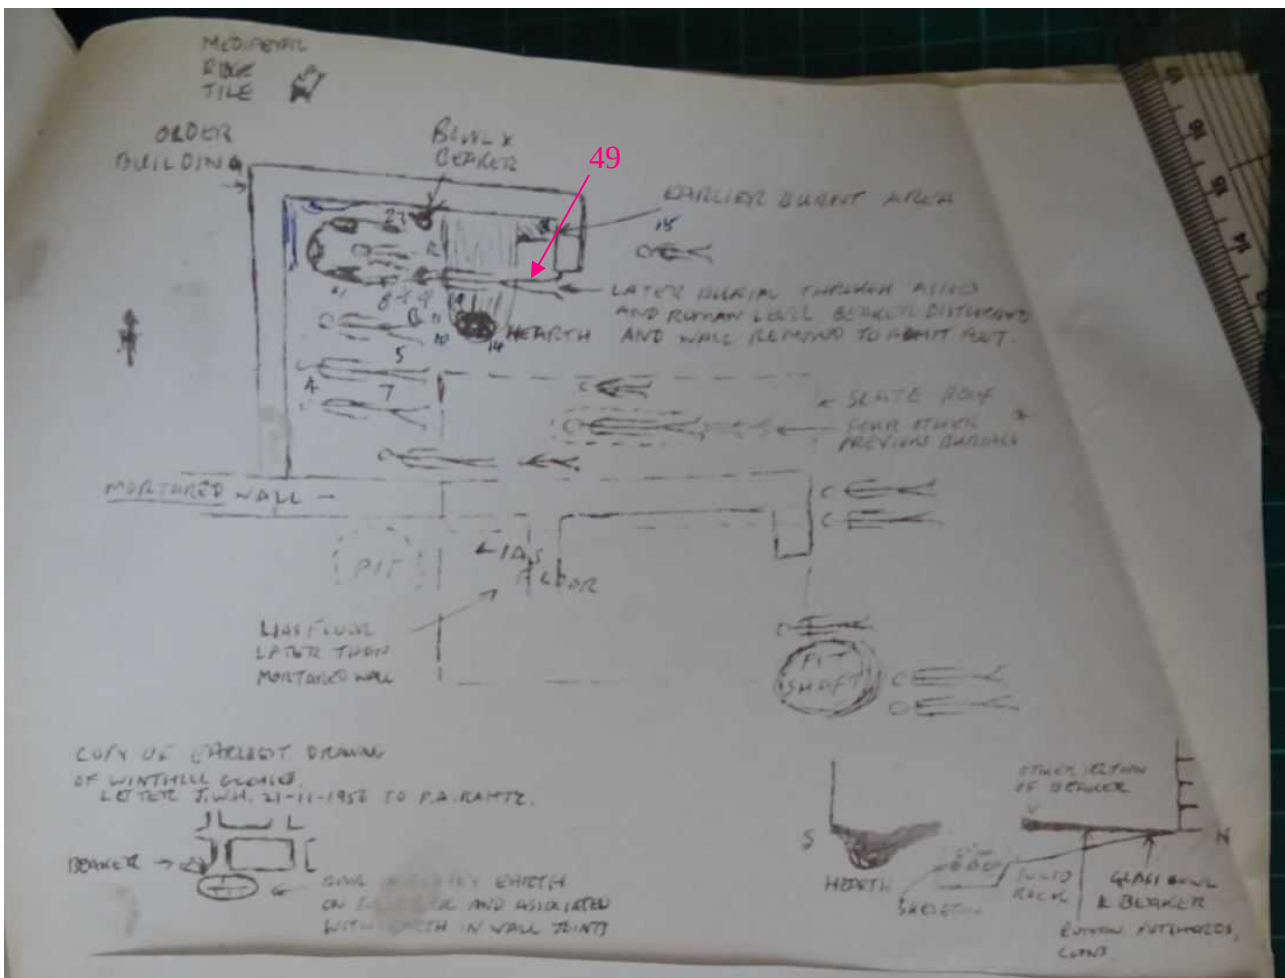 MEDIAEVAL
RIDGE
TILE
ORDER
BUILDING
BOWL &
BEAKER
49
EARLIER BURNT AREA
27
15
LATER BURIAL THROUGH ASHES
AND ROMAN LEVEL BEAKER DISTURBED
HEARTH AND WALL REMOVED TO ADMIT FEET.
8
9
B
11
10
14
5
A
7
SLATE ROOF
FOUR OTHER
PREVIOUS BURIALS
MORTARED WALL
PIT
LIAS
FLOOR
LIAS FLOOR
LATER THAN
MORTARED WALL
PIT
SHAFT
COPY OF EARLIEST DRAWING
OF WINTHILL
LETTER J.W.H. 21-11-1956 TO P.A. RAHTZ.
BEAKER
EARTH
ON AND ASSOCIATED
WITH EARTH IN WALL JOINTS
OTHER SECTION
OF BEAKER
S
N
HEARTH
SKELETON
SOLID
ROCK
GLASS BOWL
& BEAKER
ROMAN POTSHERDS,
COINS